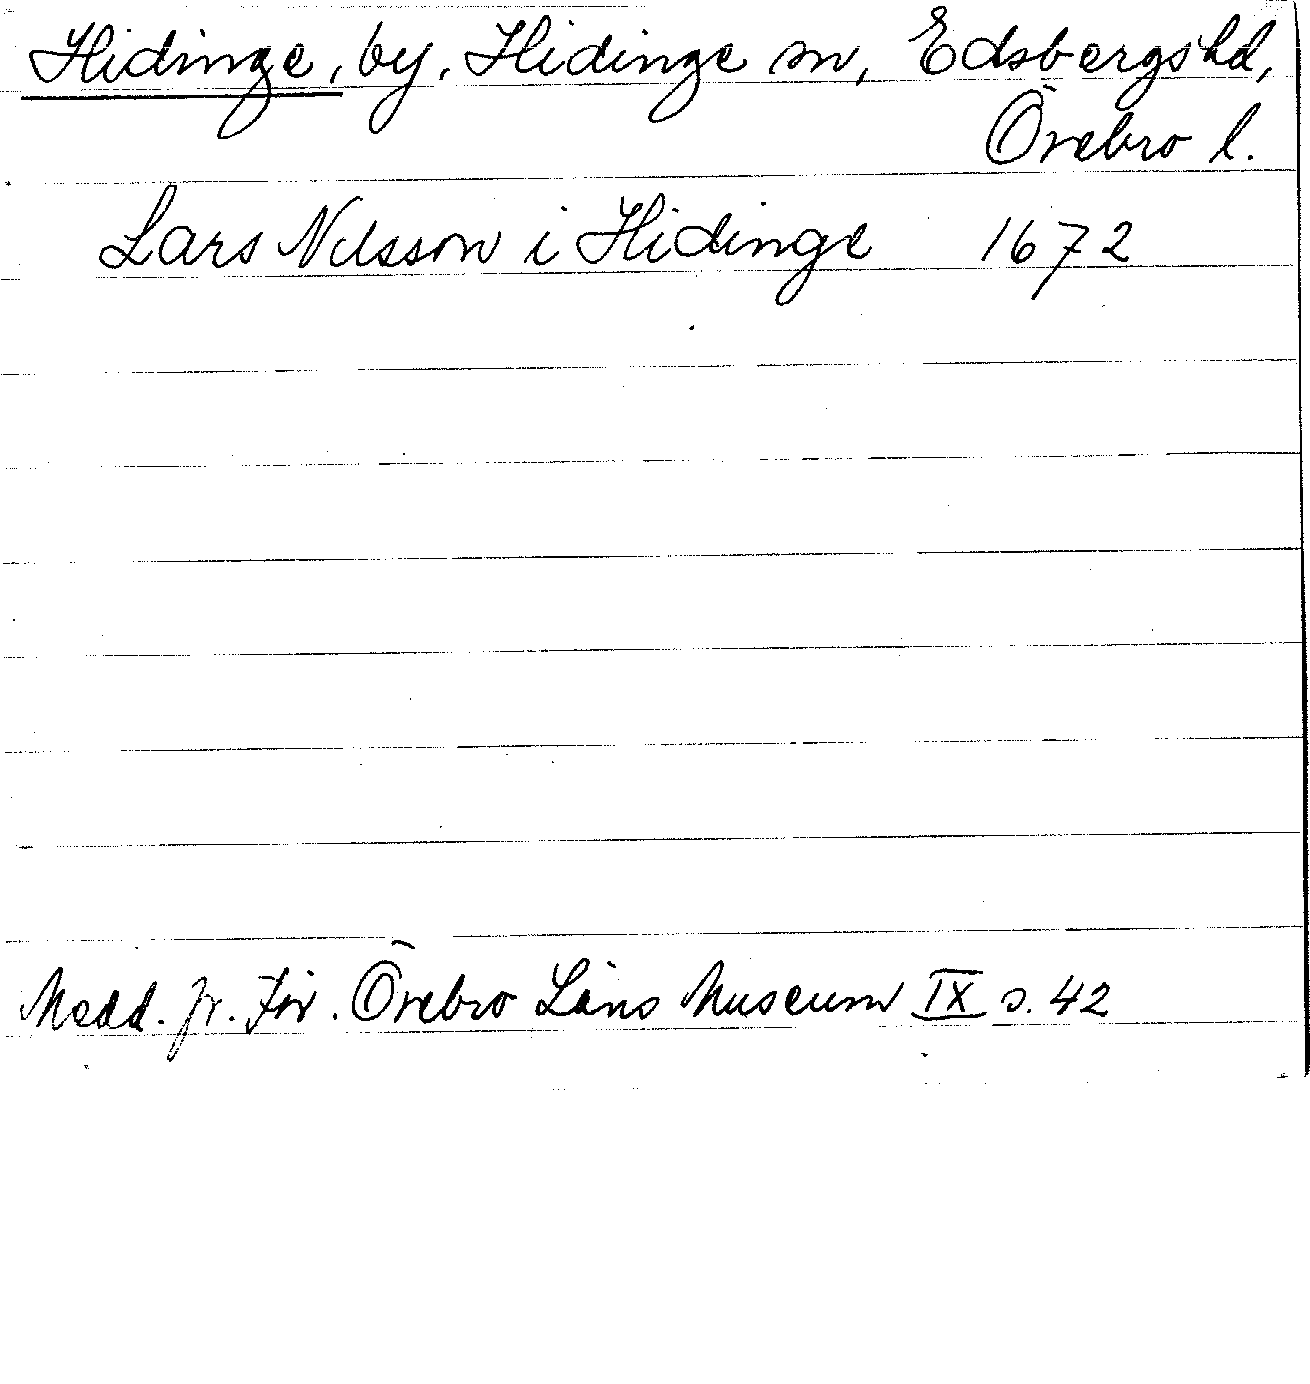 Hidinge, by, Hidinge sn, Edsbergs hd,
Örebro l.
Lars Nilsson i Hidinge 1672
Medd. fr. För. Örebro Läns Museum IX s. 42